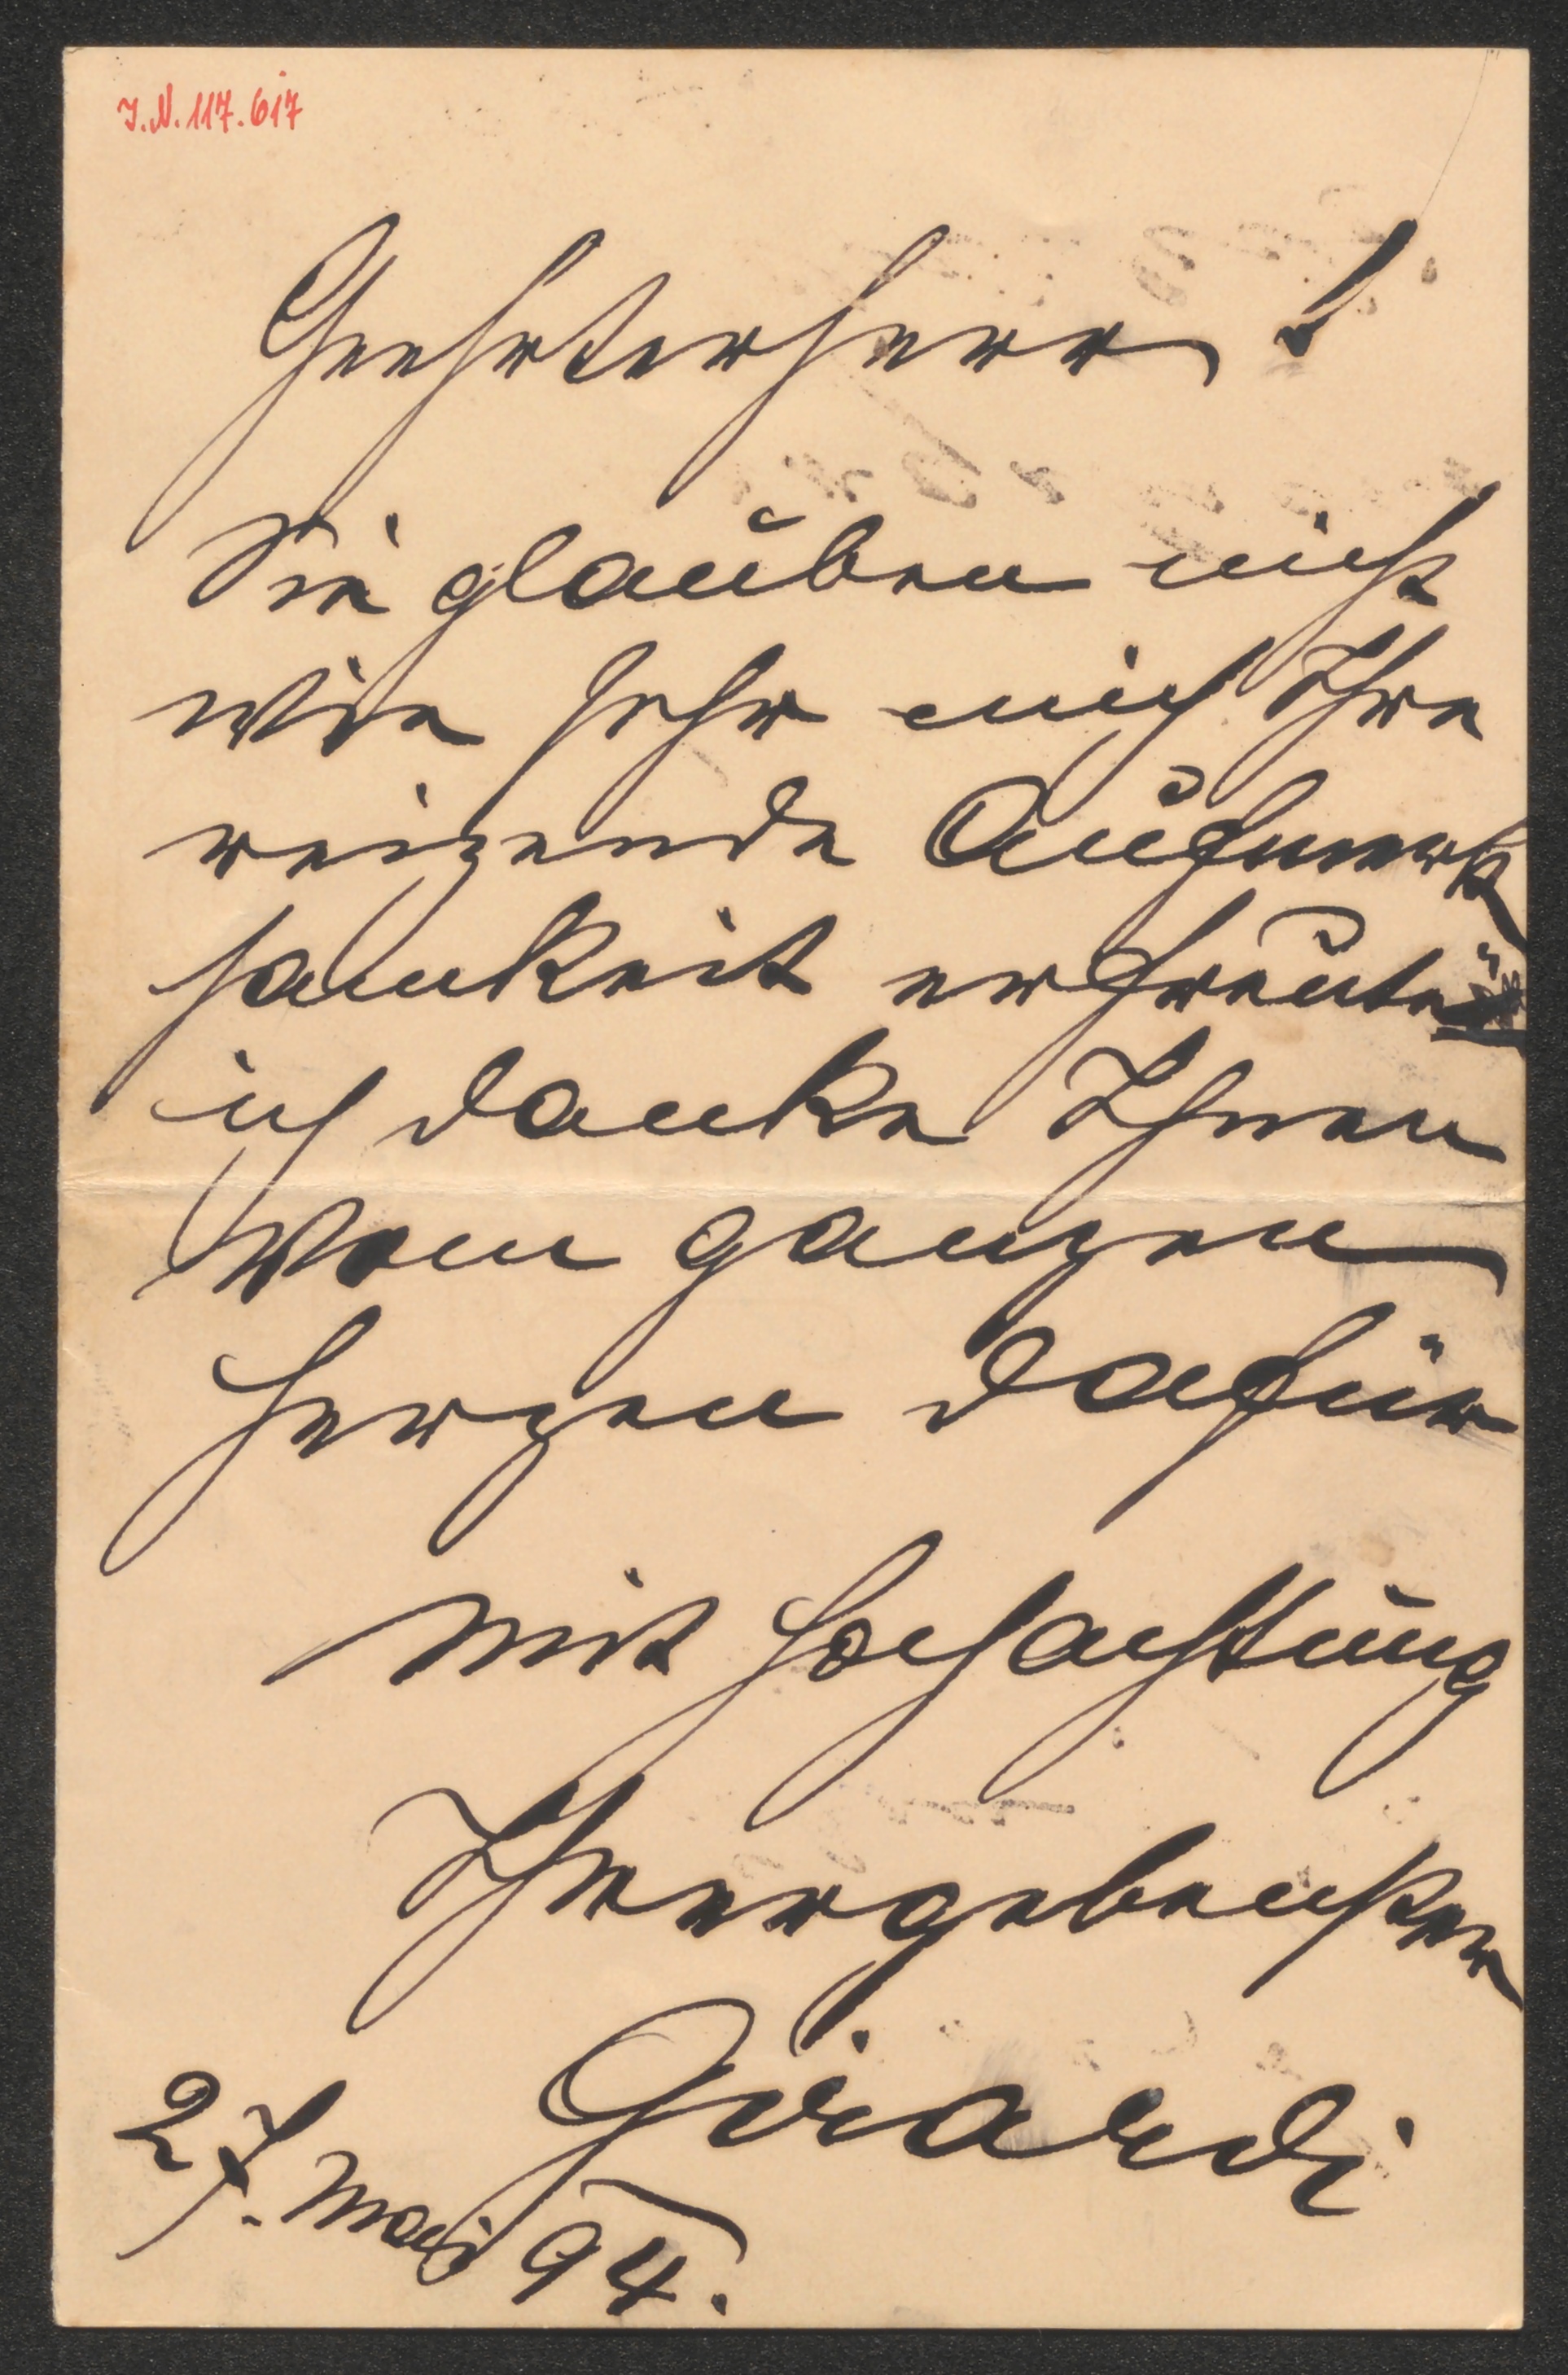 J.N. 117.617
Geehrter Herr!
Sie glauben nicht
wie sehr mich Ihre
reizende Aufmerk
samkeit erfreute
ich danke Ihnen
vom ganzen
Herzen dafür
Mit Hochachtung
Ihr ergebenster
Girardi
27. Mai 94.